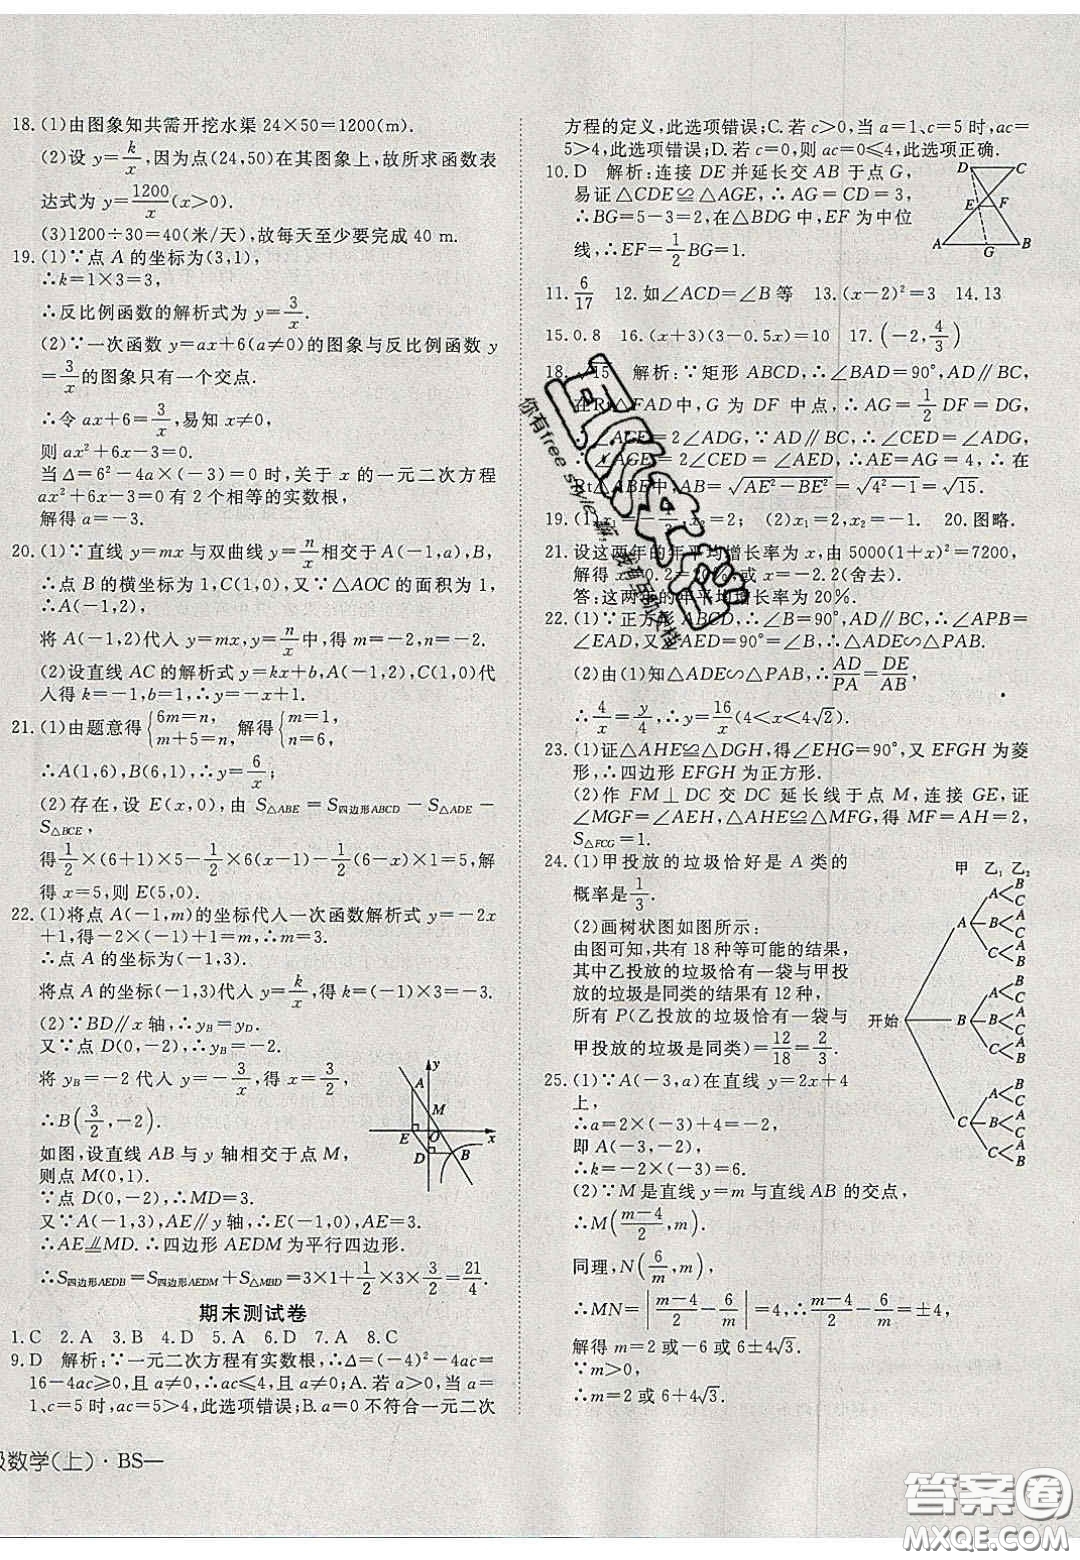 18.(1)由图象知共需开挖水渠 24×50=1200(m).
(2)设 y=k/x,因为点(24,50)在其图象上,故所求函数表
达式为 y=1200/x(x>0).
(3)1200÷30=40(米/天),故每天至少要完成 40 m.
19.(1)∵点 A 的坐标为(3,1),
∴k=1×3=3,
∴反比例函数的解析式为 y=3/x.
(2)∵一次函数 y=ax+6(a≠0)的图象与反比例函数 y
=3/x的图象只有一个交点.
∴令 ax+6=3/x,易知 x≠0,
则 ax²+6x-3=0.
当 Δ=6²-4a×(-3)=0 时,关于 x 的一元二次方程
ax²+6x-3=0 有 2 个相等的实数根,
解得 a=-3.
20.(1)∵直线 y=mx 与双曲线 y=n/x相交于 A(-1,a),B,
∴点 B 的横坐标为 1,C(1,0),又∵△AOC 的面积为 1,
∴A(-1,2),
将 A(-1,2)代入 y=mx,y=n/x中,得 m=-2,n=-2.
(2)设直线 AC 的解析式 y=kx+b,A(-1,2),C(1,0)代
入得 k=-1,b=1,∴y=-x+1.
21.(1)由题意得{6m=n, m+5=n, 解得{m=1, n=6,
∴A(1,6),B(6,1),∴y=6/x;
(2)存在,设 E(x,0),由 S△ABE=S四边形ABCD-S△ADE-
S△BCE,
得1/2×(6+1)×5-1/2×6(x-1)-1/2(6-x)×1=5,解
得 x=5,则 E(5,0).
22.(1)将点 A(-1,m)的坐标代入一次函数解析式 y=-2x
+1,得-2×(-1)+1=m,∴m=3.
∴点 A 的坐标为(-1,3).
将点 A 的坐标(-1,3)代入 y=k/x,得 k=(-1)×3=-3.
(2)∵BD∥x 轴,∴yB=yD.
又∵点 D(0,-2),∴yB=-2.
将 yB=-2 代入 y=-3/x,得 x=3/2,
∴B(3/2,-2).
如图,设直线 AB 与 y 轴相交于点 M,
则点 M(0,1).
∵点 D(0,-2),∴MD=3.
又∵A(-1,3),AE∥y 轴,∴E(-1,0),AE=3.
∴AE⫽MD.∴四边形 AEDM 为平行四边形.
∴S四边形AEDB=S四边形AEDM+S△MBD=3×1+1/2×3×3/2=21/4.
y
A
M
E
O
x
D
B
期末测试卷
1.C 2.A 3.B 4.D 5.A 6.D 7.A 8.C
9.D 解析:∵一元二次方程有实数根,∴Δ=(-4)²-4ac=
16-4ac≥0,且 a≠0,∴ac≤4,且 a≠0;A.若 a>0,当 a=
1、c=5 时,ac=5>4,此选项错误;B.a=0 不符合一元二次
级数学(上)·BS—
方程的定义,此选项错误;C.若 c>0,当 a=1、c=5 时,ac=
5>4,此选项错误;D.若 c=0,则 ac=0≤4,此选项正确.
10.D 解析:连接 DE 并延长交 AB 于点 G,
易证△CDE≌△AGE,∴AG=CD=3,
∴BG=5-3=2,在△BDG 中,EF 为中位
线,∴EF=1/2BG=1.
D C
E F
A G B
11.6/17 12.如∠ACD=∠B 等 13.(x-2)²=3 14.13
15.0.8 16.(x+3)(3-0.5x)=10 17.(-2,4/3)
18.√15 解析:∵矩形 ABCD,∴∠BAD=90°,AD∥BC,
在Rt△FAD中,G 为 DF 中点,∴AG=1/2DF=DG,
∴∠AGE=2∠ADG.∵AD∥BC,∴∠CED=∠ADG,
∴∠AGE=2∠CED=∠AED.∴AE=AG=4,∴在
Rt△ABE中,AB=√AE²-BE²=√4²-1=√15.
19.(1)x₁=-,x₂=2; (2)x₁=2,x₂=-1. 20.图略.
21.设这两年的年平均增长率为 x,由 5000(1+x)²=7200,
解得 x=0.2=20%或 x=-2.2(舍去).
答:这两年的年平均增长率为 20%.
22.(1)∵正方形 ABCD,∴∠B=90°,AD∥BC,∴∠APB=
∠EAD,又∠AED=90°=∠B,∴△ADE∽△PAB.
(2)由(1)知△ADE∽△PAB,∴AD/PA=DE/AB,
∴4/x=y/4,∴y=16/x(4<x<4√2).
23.(1)证△AHE≌△DGH,得∠EHG=90°,又 EFGH 为菱
形,∴四边形 EFGH 为正方形.
(2)作 FM⊥DC 交 DC 延长线于点 M,连接 GE,证
∠MGF=∠AEH,△AHE≌△MFG,得 MF=AH=2,
S△FCG=1.
24.(1)甲投放的垃圾恰好是 A 类的
概率是1/3.
(2)画树状图如图所示:
由图可知,共有 18 种等可能的结果,
其中乙投放的垃圾恰有一袋与甲投
放的垃圾是同类的结果有 12 种,
所有 P(乙投放的垃圾恰有一袋与
甲投放的垃圾是同类)=12/18=2/3.
甲 乙₁ 乙₂
开始
A
A B C
B A C
C A B
B
A B C
B A C
C A B
C
A B C
B A C
C A B
25.(1)∵A(-3,a)在直线 y=2x+4
上,
∴a=2×(-3)+4=-2,
即 A(-3,-2),
∴k=-2×(-3)=6.
(2)∵M 是直线 y=m 与直线 AB 的交点,
∴M(m-4/2,m).
同理,N(6/m,m),
∴MN=|m-4/2-6/m|=4,∴m-4/2-6/m=±4,
解得 m=2 或-6 或 6±4√3.
∵m>0,
∴m=2 或 6+4√3.
答案圈
MXQE.COM